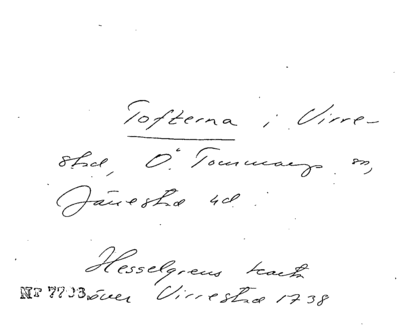 Tofterna i Virre-
stad, Ö. Tommarps sn,
Järrestad hd.
Hesselgrens karta
NF 7703 över Virrestad 1738